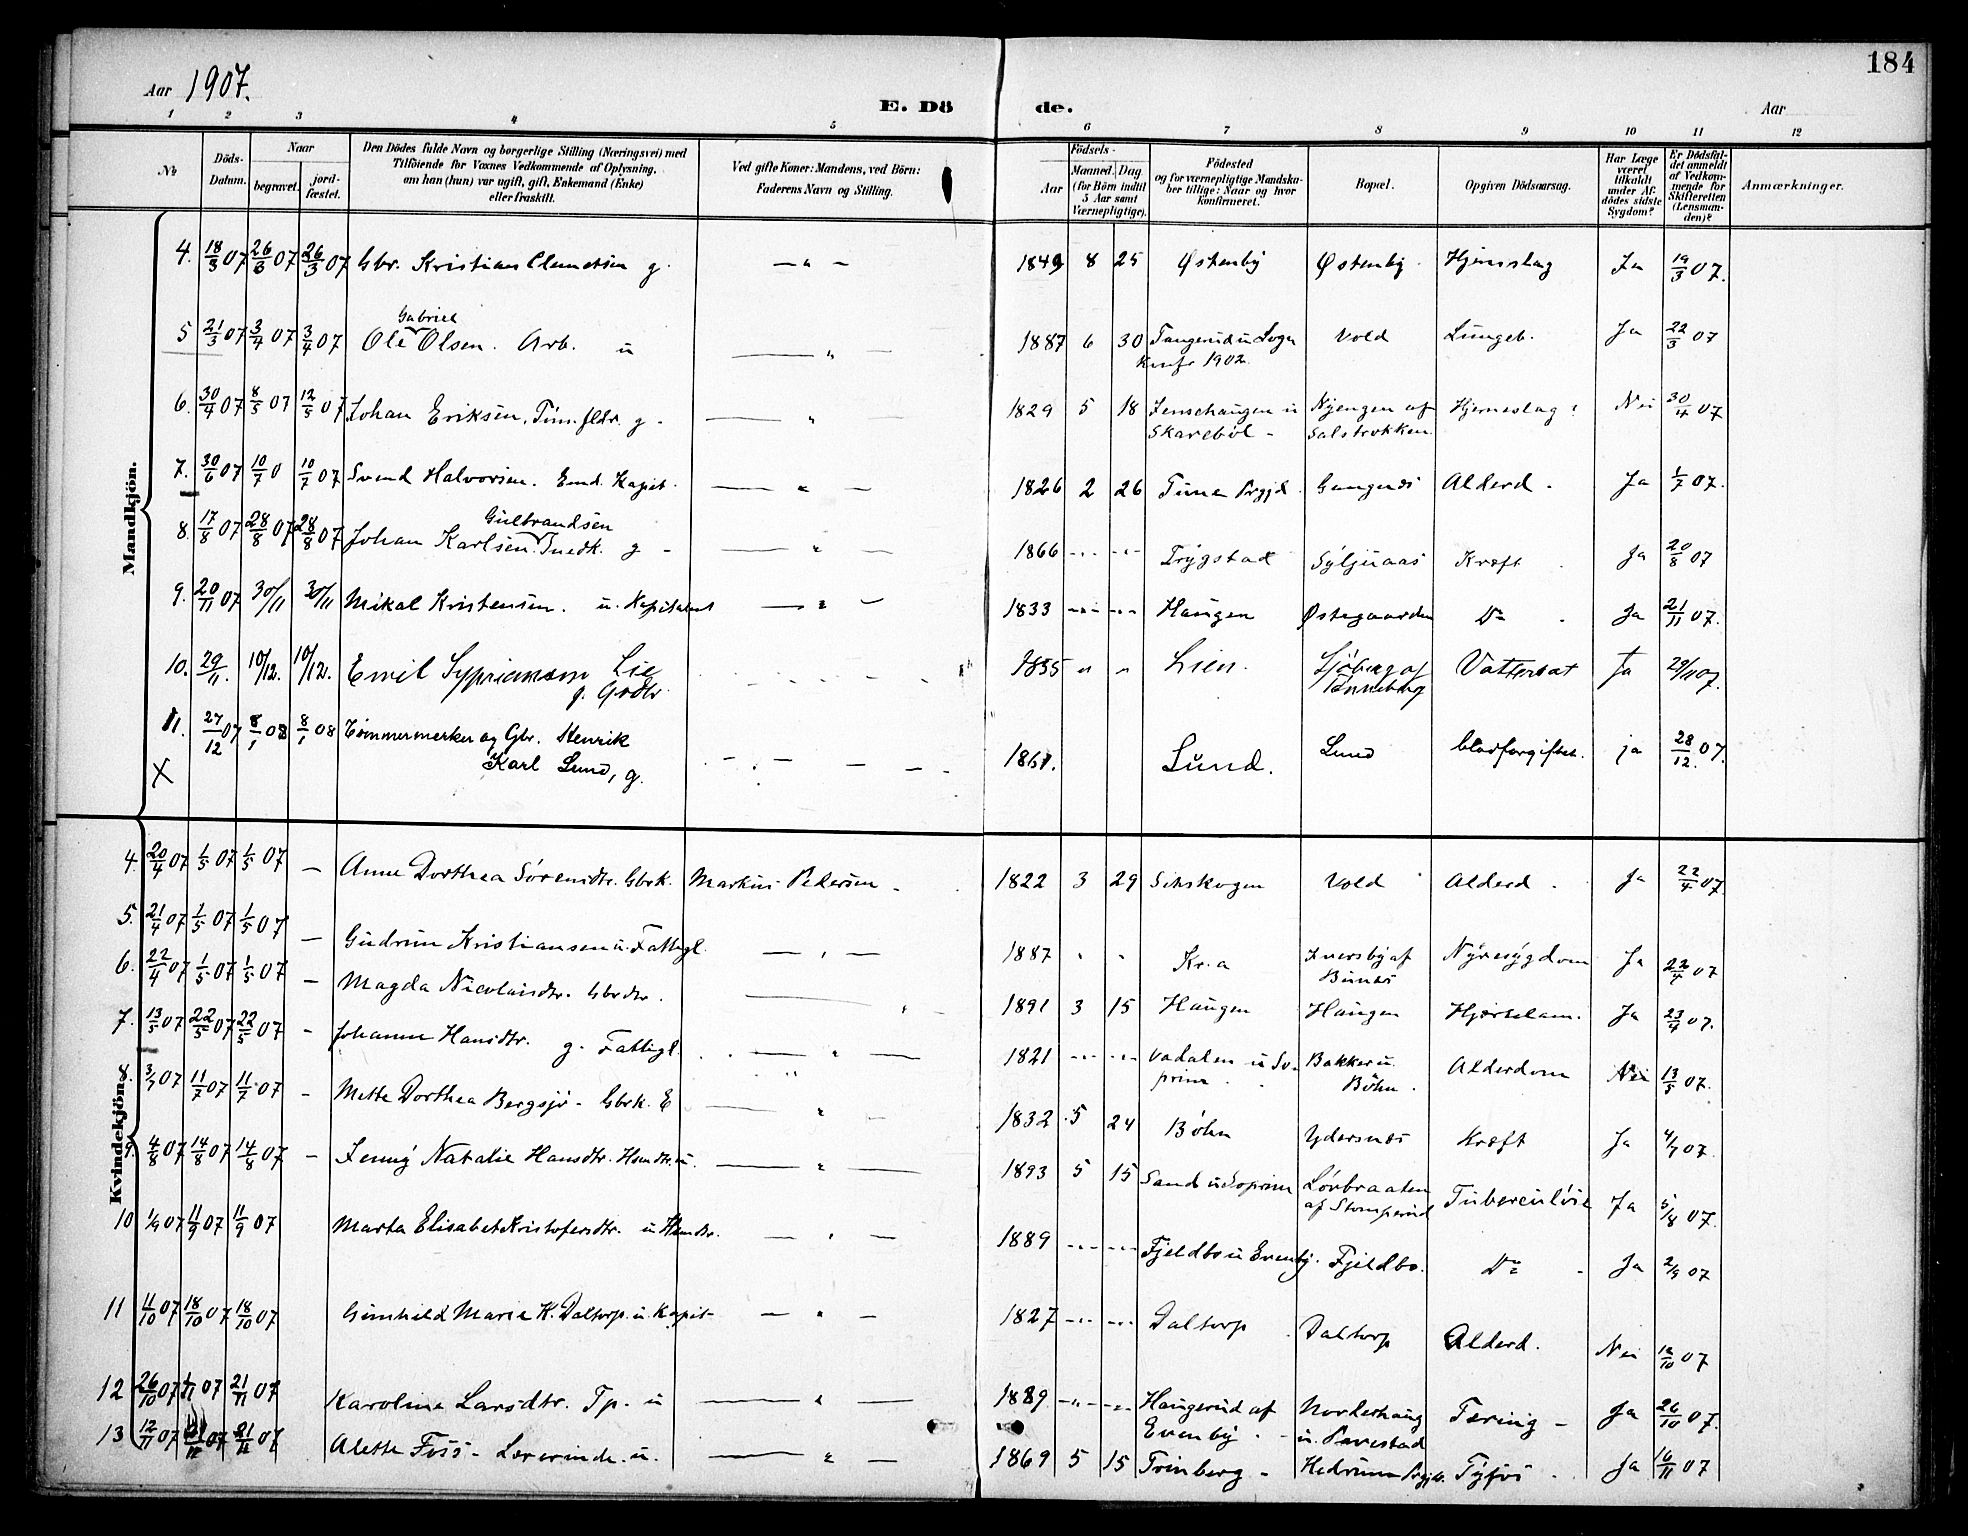 184
Aar 1907.
E. Dö de.
Aar
1 2 3 4 5 6 7 8 9 10 11 12
No
Döds-Datum.
Naar
begravet.
jord-fæstet.
Den Dödes fulde Navn og borgerlige Stilling (Næringsvei) med
Tilföiende for Voxnes Vedkommende af Oplysning,
om han (hun) var ugift, gift, Enkemand (Enke)
eller fraskilt.
Ved gifte Koner: Mandens, ved Börn:
Faderens Navn og Stilling.
Födsels-
Aar
Maaned. Dag
(for Börn indtil
5 Aar samt
Værnepligtige).
Födested
og for værnepligtige Mandska-
ber tillige: Naar og hvor
Konfirmeret.
Bopæl.
Opgiven Dödsaarsag.
Har Læge
været
tilkaldt
under Af-
dödes sidste
Sygdom?
Er Dödsfal-
det anmeldt
af Vedkom-
mende for
Skifteretten
(Lensman-
den)?
Anmærkninger.
Mandkjön.
4. 18/3 07 26/3 07 26/3 07 Gbr. Kristian Clemetsen g. — " — 1849 8 25 Østenby Østenby Hjerneslag Ja 19/3 07.
Gabriel
5 21/3 07 3/4 07 3/4 07 Ole Olsen. Arb. u — " — 1887 6 30 Tangerud u Vold Lungeb. Ja 22/3 07
Konfr 1902
6. 30/4 07 8/5 07 12/5 07 Johan Eriksen, g — " 1829 5 18 Jenshaugen u Njengen af Hjerneslag Nei 30/4 07
Skareböl Salstrokken
7. 30/6 07 10/7 0 10/7 07 Svend Halvorsen. Emd. Kapit. — " — 1826 2 26 Tune Prgjd. Gangnæs Alderd. Ja 1/7 07.
Gulbrandsen
8. 17/8 07 28/8 07 28/8 07 Johan Karlsen. Snedk. g — " — 1866 Trygstad Syljuaas Kræft Ja 20/8 07
9. 20/11 07 30/11 30/11 Mikal Kristensen. u. Kapitalist — " — 1833 Haugen Østegaarden Do Ja 21/11 07.
10. 29/11. 10/12. 10/12. Emil Syprianson Lie 1835 " " Lien. Sjöberg af Vattersot Ja 29/11 07.
g. Tønneberg
11. 27/12 07 8/1 08 8/1 08 Tömmermerker og Gbr. Henrik 1861. Lund. Lund blodforgiftet. ja 28/12 07.
X Karl Lund, g.
Kvindekjön.
4. 20/4 07 1/5 07 1/5 07 — Anne Dorthea Sörensdtr. Gbrk. Markus Pedersen 1822 3 29 Vold Alderd. Ja 22/4 07
5. 21/4 07 1/5 07 1/5 07 — Gudrun Kristiansen u. Fattigl. — " — 1887 " " Kr.a Iversby af Nyresygdom Ja 22/4 07
Bunæs
6. 22/4 07 1/5 07 1/5 07 — Magda Nicolaisdtr. Gbrdtr. — " 1891 3 15 Haugen Haugen Hjertelam. Ja 23/4 07.
7. 13/5 07 22/5 07 22/5 07 — Johanne Hansdtr. g. Fattigl. — " — 1821 Vadalen u So- Bakker u. Alderdom Nei 13/5 07.
prim Böhn.
8. 3/7 07 11/7 07 11/7 07 — Mette Dorthea Bergsjö - Gbrk. E — " — 1832 5 24 Böhn Ydersnæs Kræft Ja 4/7 07.
9. 4/8 07 14/8 07 14/8 07 — Jenny Natalie Hansdtr. Hsmdtr. u. — " — 1893 5 15 Sand u Soprim Lövbraaten Tuberculöse Ja 5/8 07.
af Stomperud
10 1/9 07 11/9 07 11/9 07 Marta Elisabet Kristofersdtr. u Hsmdtr. — " — 1889 Fjeldbo u Evenby. Fjeldbo. Do Ja 2/9 07
11 11/10 07 18/10 07 18/10 07 Gunhild Marie K. Daltorp. u. Kapit- — " — 1827 Daltorp Daltorp Alderd. Nei 12/10 07
12 26/10 07 07 21/11 07 Karoline Larsdtr. Tp. u — " — 1889 Haugerud af Norderhaug Tæring - Ja 26/10 07.
Evenby. u. Prestad
13 12/11 07 21/11 07 21/11 07 Alette Foss - Lærerinde. u. — " — 1869 5 15 Trinborg - Hedrum Prgjd. Tyfus Ja 16/11 07